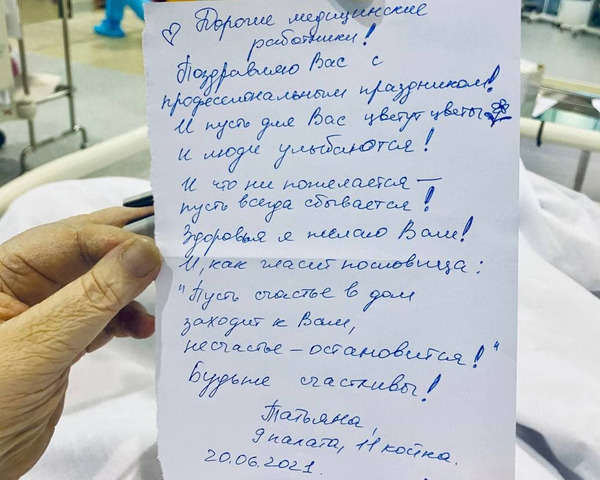 Дорогие медицинские
работники!
Поздравляю Вас с
профессиональным праздником!
И пусть для Вас цветут цветы
и люди улыбаются!
И что ни пожелается —
пусть всегда сбывается!
Здоровья я желаю Вам!
И, как гласит пословица:
"Пусть счастье в дом
заходит к Вам,
несчастье – остановится!"
Будьте счастливы!
Татьяна,
9 палата, 11 койка.
20.06.2021.